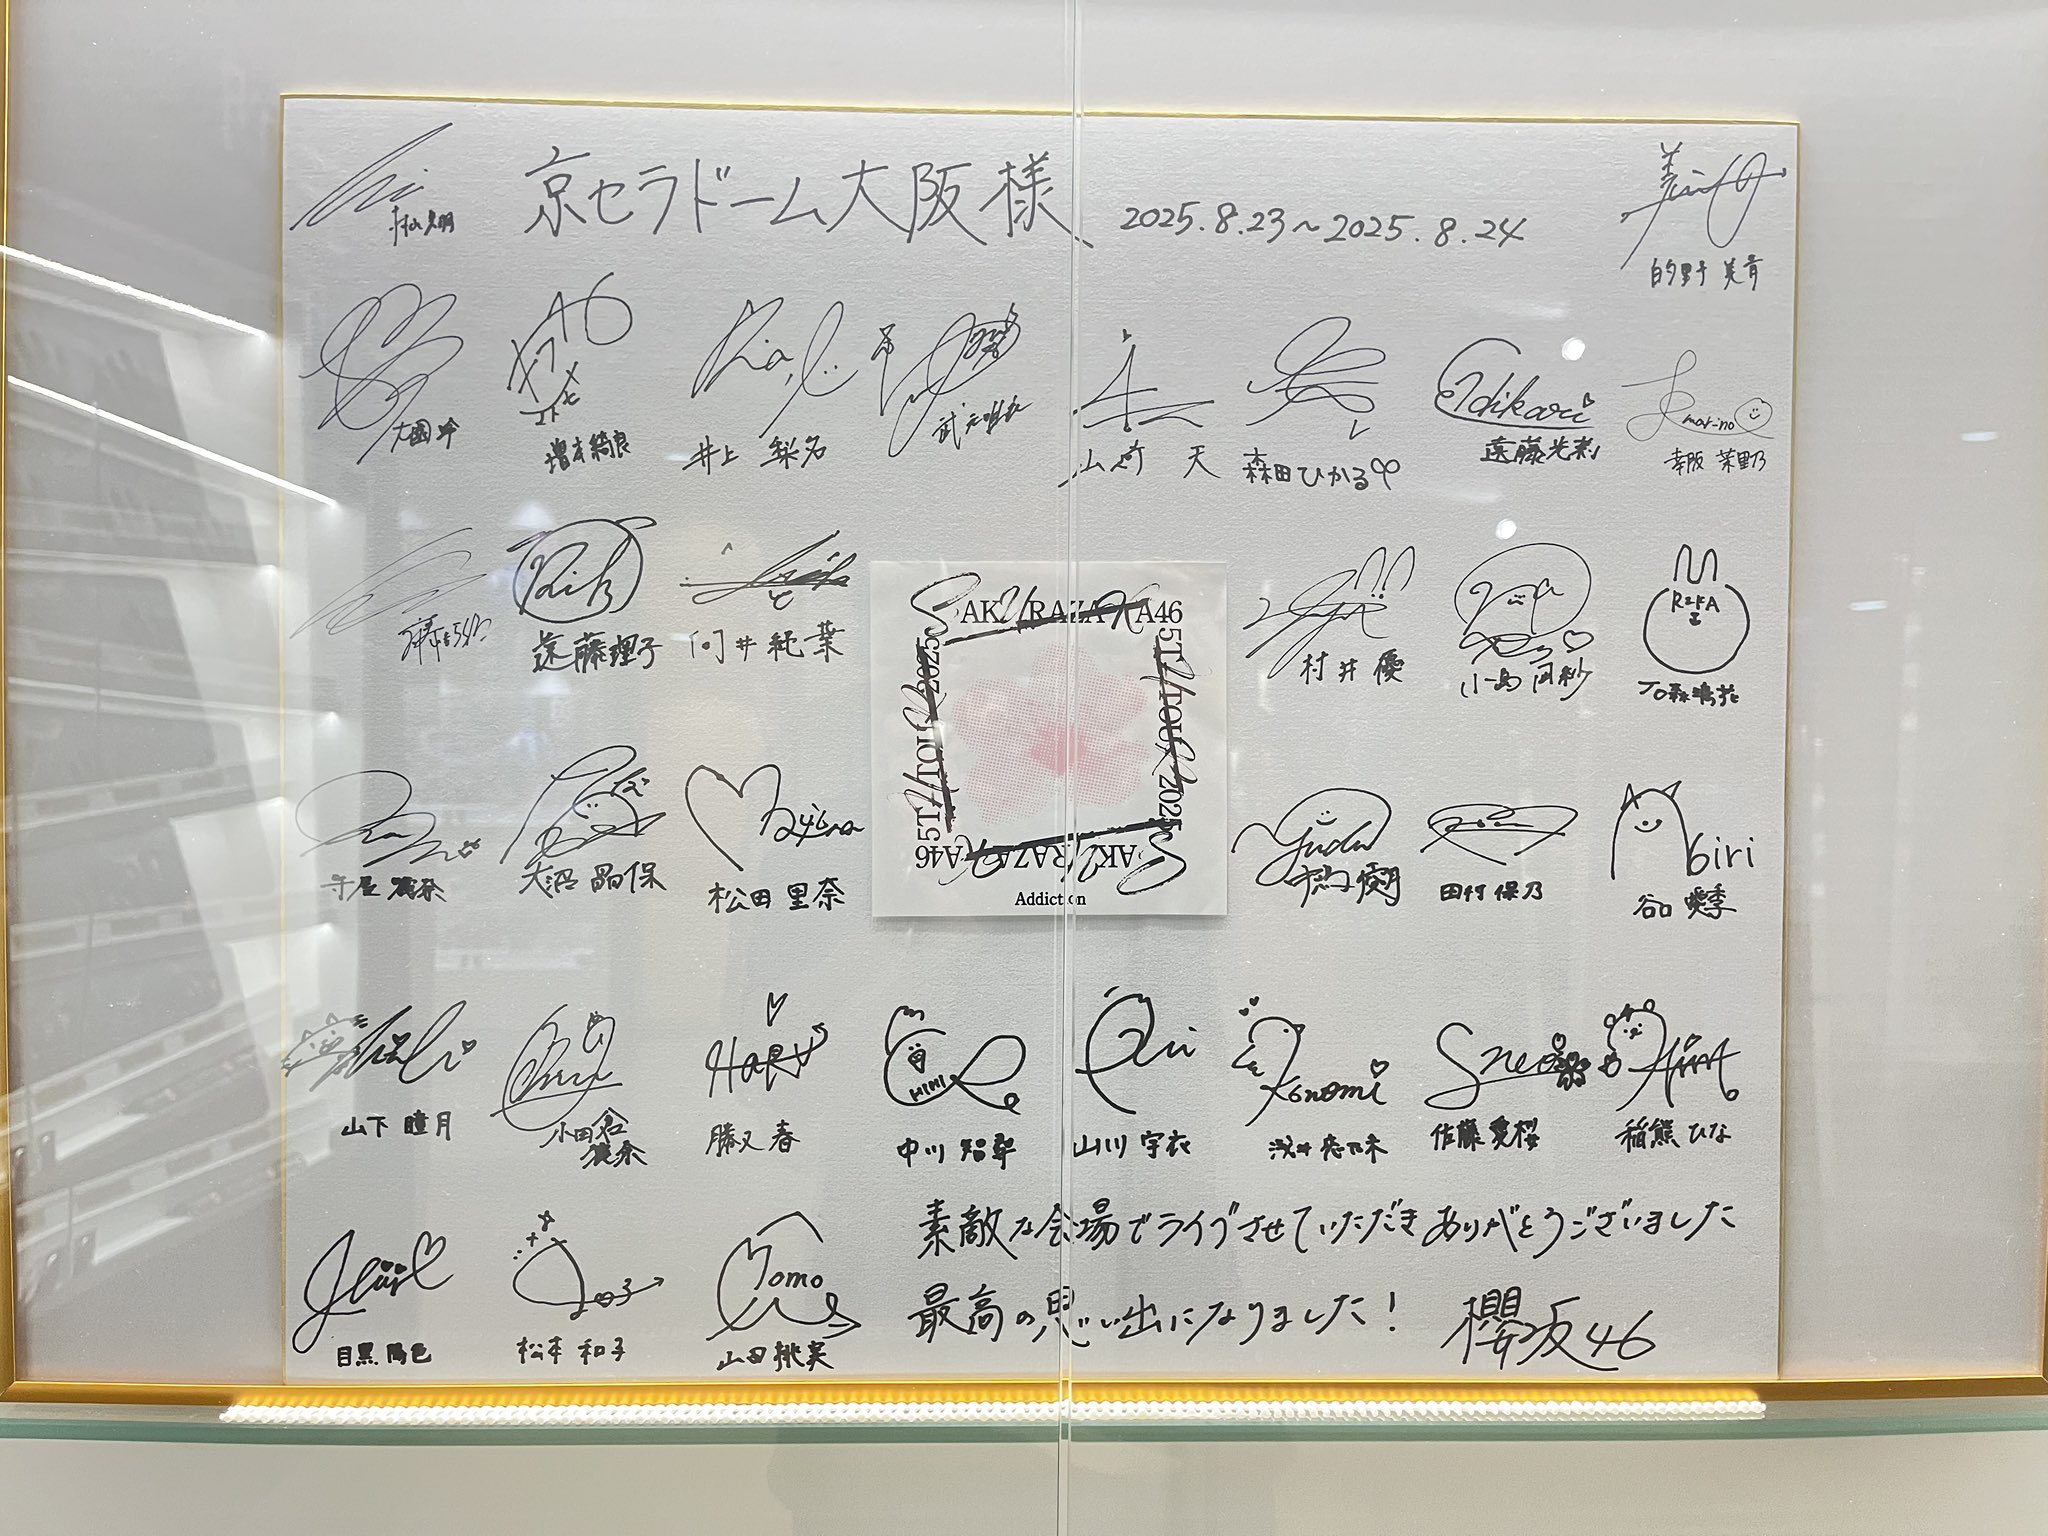 京セラドーム大阪様
2025.8.23〜2025.8.24
的野美青
大園玲
46
増本綺良
井上梨名
武元唯衣
山﨑天
森田ひかる
Hikari
遠藤光莉
marino
幸阪茉里乃
Riko
遠藤理子
向井純葉
SAKURAZAKA46
5TH TOUR 2025
SAKURAZAKA46
5TH TOUR 2025
Addiction
村井優
小島凪紗
石森璃花
守屋麗奈
大沼晶保
松田里奈
田村保乃
airi
谷口愛季
山下瞳月
小田倉麗奈
HARU
勝又春
中川智尋
Ui
山川宇衣
Konomi
浅井恋乃未
Sneo
佐藤愛桜
HINA
稲熊ひな
目黒陽色
松本和子
Momo
山田桃実
素敵な会場でライブさせていただきありがとうございました
最高の思い出になりました！
櫻坂46